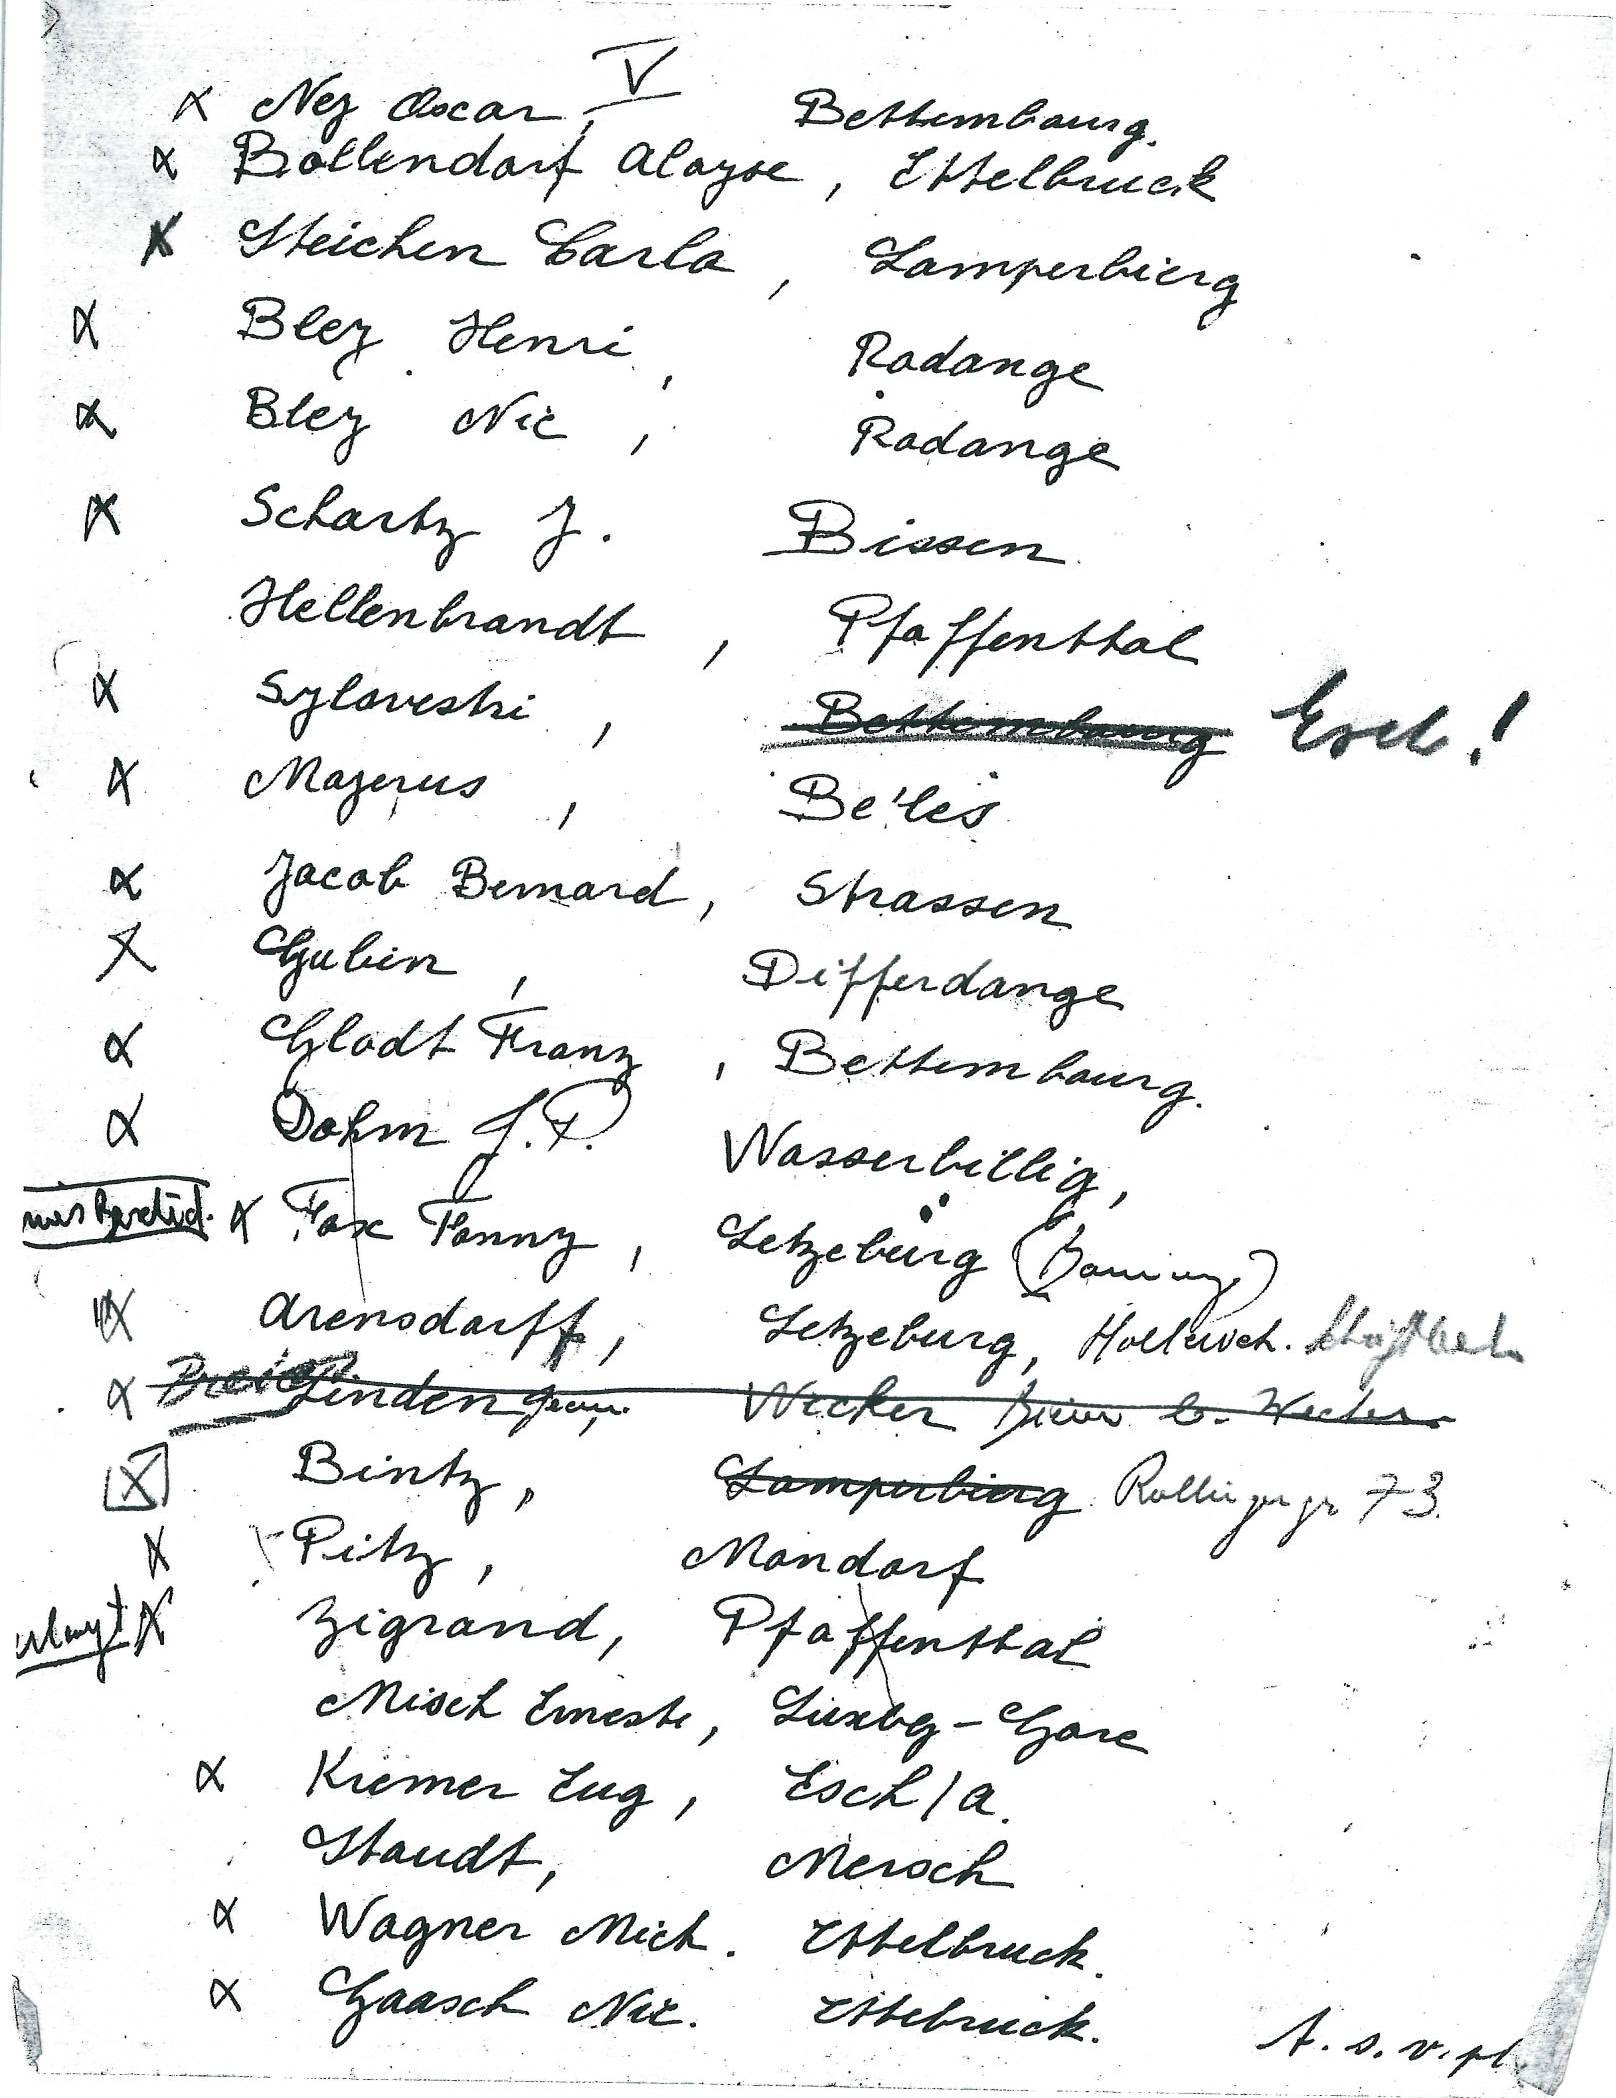 V
x Ney Oscar, Bettembourg.
x Bollendorf Aloyse, Ettelbruck
x Steichen Carlo, Lamperbierg
x Bley Henri, Rodange
x Bley Nic, Rodange
x Schartz J. Bissen
Hellenbrandt, Pfaffenthal
x Sylvestri, Bettembourg Esch!
x Majerus, Be'les
x Jacob Bernard, Strassen
x Gubin, Differdange
x Glodt Franz, Bettembourg.
x Dohm J.P. Wasserbillig,
x Fox Fanny, Letzebürg
x Arensdorff, Letzeburg, Hollerich.
x Linden Jean, Wecker b. Wecker
x Bintz, Lamperbierg 73.
x Pitz, Mondorf
x Zigrand, Pfaffenthal
Misch Erneste, Luxbg-Gare
x Kremer Eug, Esch/a.
Staudt, Mersch
x Wagner Mich. Ettelbruck.
x Gaasch Nic. Ettebruck.
t. s. v. pl.